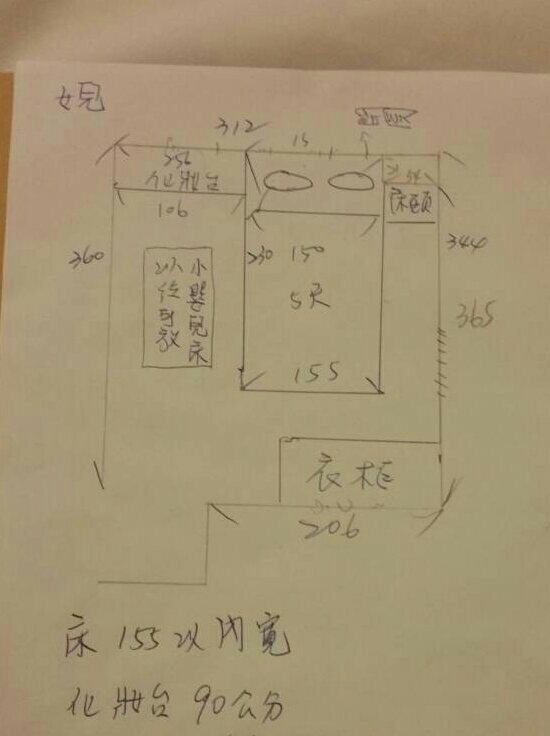 女兒
312
15
256
化妝台
106
54
床頭
360
230
150
5尺
344
365
小嬰兒床
以位可放
155
衣柜
206
床 155以內寬
化妝台 90公分